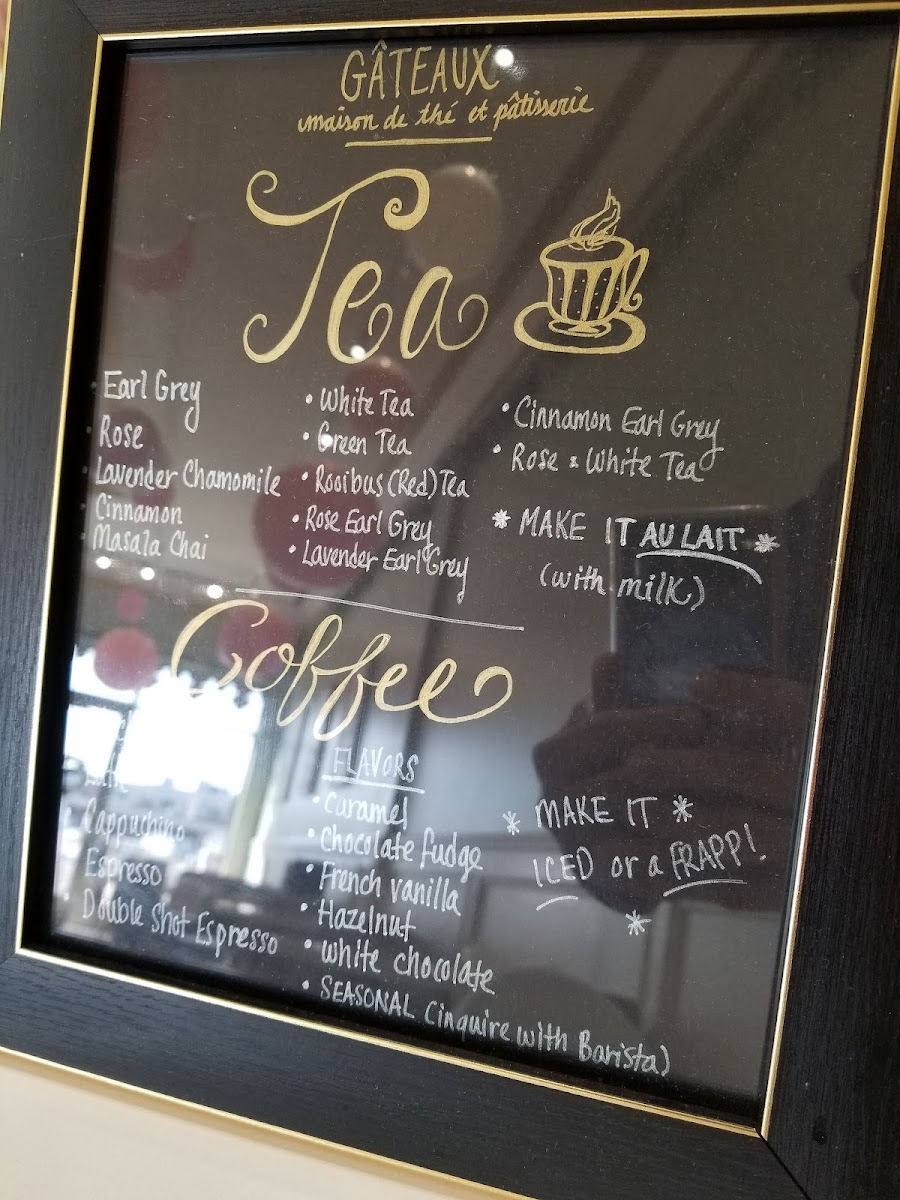 GÂTEAUX
maison de thé et pâtisserie
Tea
• Earl Grey
• Rose
• Lavender Chamomile
• Cinnamon
• Masala Chai
• White Tea
• Green Tea
• Rooibus (Red) Tea
• Rose Earl Grey
• Lavender Earl Grey
• Cinnamon Earl Grey
• Rose & White Tea
* MAKE IT AU LAIT *
(with milk)
Coffee
Cappuchino
Espresso
Double Shot Espresso
FLAVORS
• Caramel
• Chocolate fudge
• French vanilla
• Hazelnut
• white chocolate
• SEASONAL (inquire with Barista)
* MAKE IT *
ICED or a FRAPP!
*